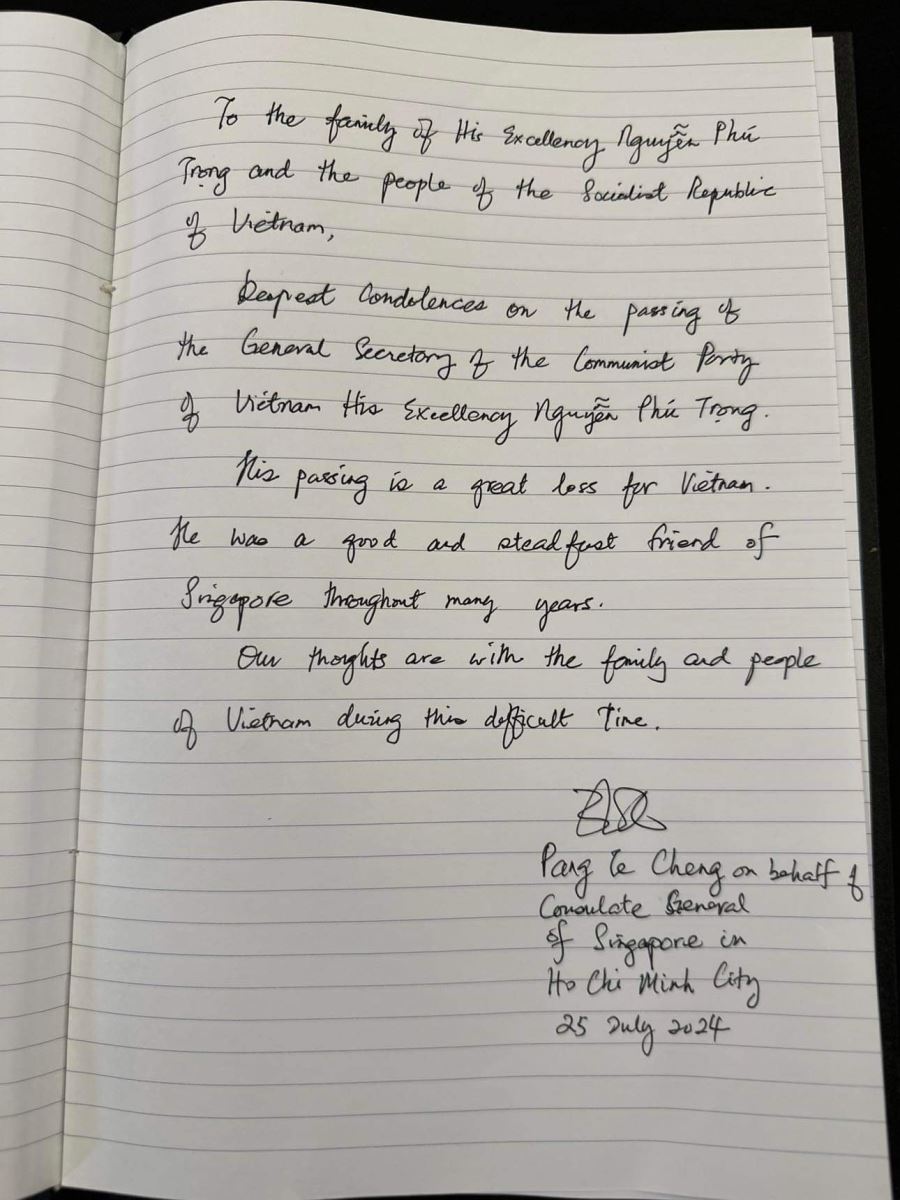 To the family of His Excellency Nguyễn Phú
Trọng and the people of the Socialist Republic
of Vietnam,
Deepest Condolences on the passing of
the General Secretary of the Communist Party
of Vietnam His Excellency Nguyễn Phú Trọng.
His passing is a great loss for Vietnam.
He was a good and steadfast friend of
Singapore throughout many years.
Our thoughts are with the family and people
of Vietnam during this difficult time.
Pang Te Cheng on behalf of
Consulate General
of Singapore in
Ho Chi Minh City
25 July 2024